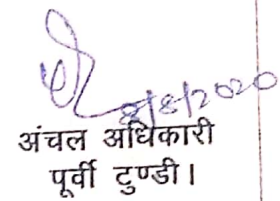 8/8/2020
अंचल अधिकारी
पूर्वी टुण्डी।